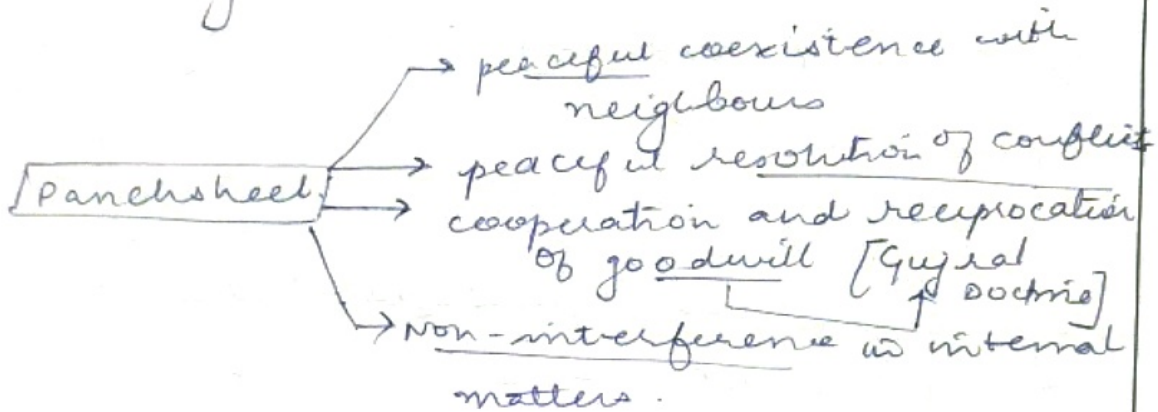 peaceful coexistence with
neighbours
Panchsheel
peaceful resolution of conflicts
cooperation and reciprocation
of goodwill [Gujral
Doctrine]
Non-interference in internal
matters.